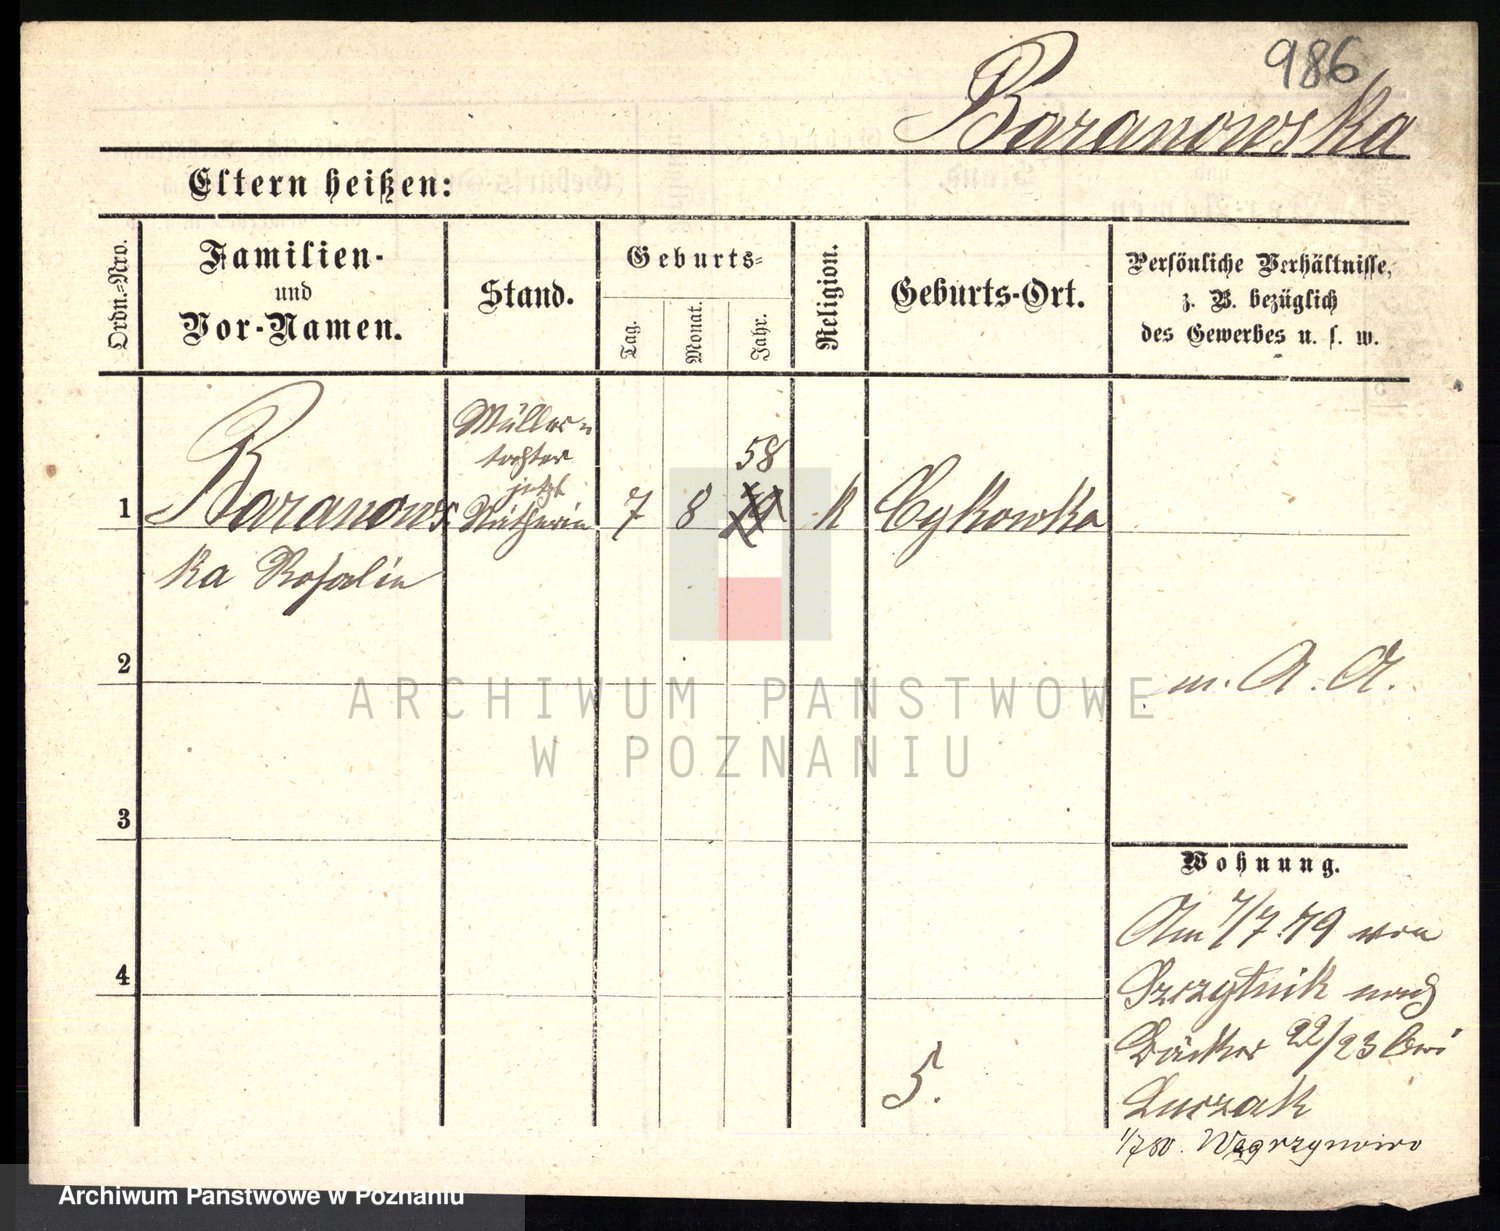 986
Baranowska
Eltern heißen:
Ordn.-Nro.
Familien-
und
Vor-Namen.
Stand.
Geburts-
Tag.
Monat.
Jahr.
Religion.
Geburts-Ort.
Persönliche Verhältnisse,
z. B. bezüglich
des Gewerbes u. s. w.
1
Baranows
ka Rosalie
Müllers
tochter
jetzt
Nätherin
7
8
58
K
Cykowko
2
m. A. A.
3
4
5.
Wohnung.
Am 7/7 79 von
Szczytnik nach
Bäcker 22/23 bei
Luczak
1/7 80. Węgrzynowo
ARCHIWUM PANSTWOWE
W POZNANIU
Archiwum Panstwowe w Poznaniu